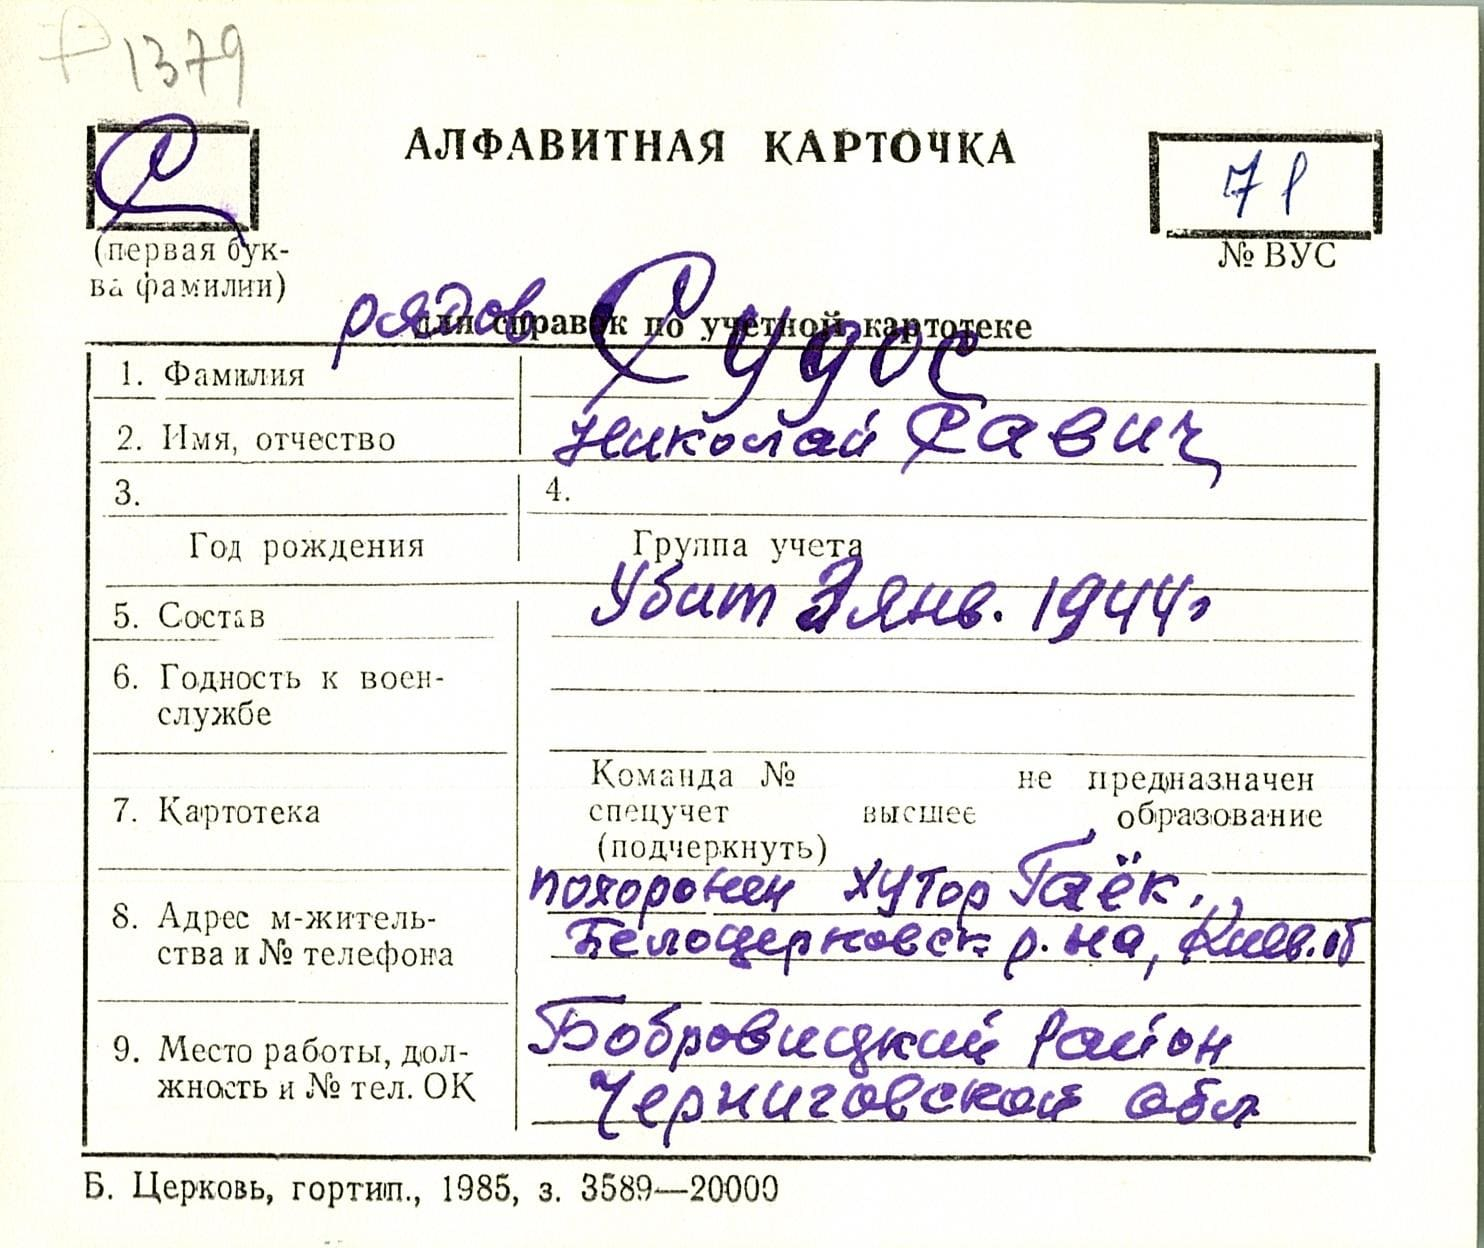 1379
С
АЛФАВИТНАЯ КАРТОЧКА
71
(первая бук-
ва фамилии)
№ ВУС
рядов
для справок по учетной картотеке
1. Фамилия Судос
2. Имя, отчество Николай Савич
3. 4.
Год рождения Группа учета
Убит 2 янв. 1944г
5. Состав
6. Годность к воен-
службе
Команда № не предназначен
7. Картотека спецучет высшее образование
(подчеркнуть)
похоронен хутор Гаёк.,
8. Адрес м-житель-
ства и № телефона Белоцерковск р-на, Киев.об
Бобровицкий район
9. Место работы, дол-
жность и № тел. ОК Черниговской обл
Б. Церковь, гортип., 1985, з. 3589—20000